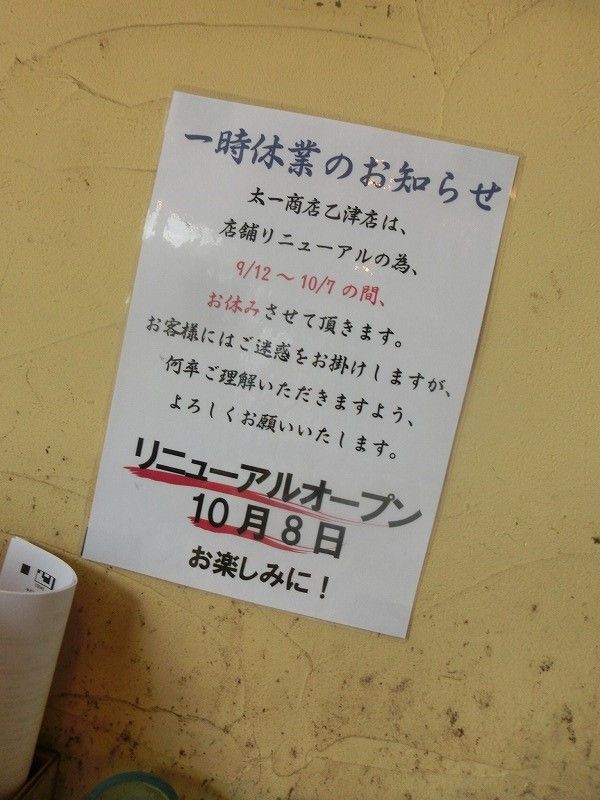 一時休業のお知らせ
太一商店乙津店は、
店舗リニューアルの為、
9/12～10/7の間、
お休みさせて頂きます。
お客様にはご迷惑をお掛けしますが、
何卒ご理解いただきますよう、
よろしくお願いいたします。
リニューアルオープン
10月8日
お楽しみに！